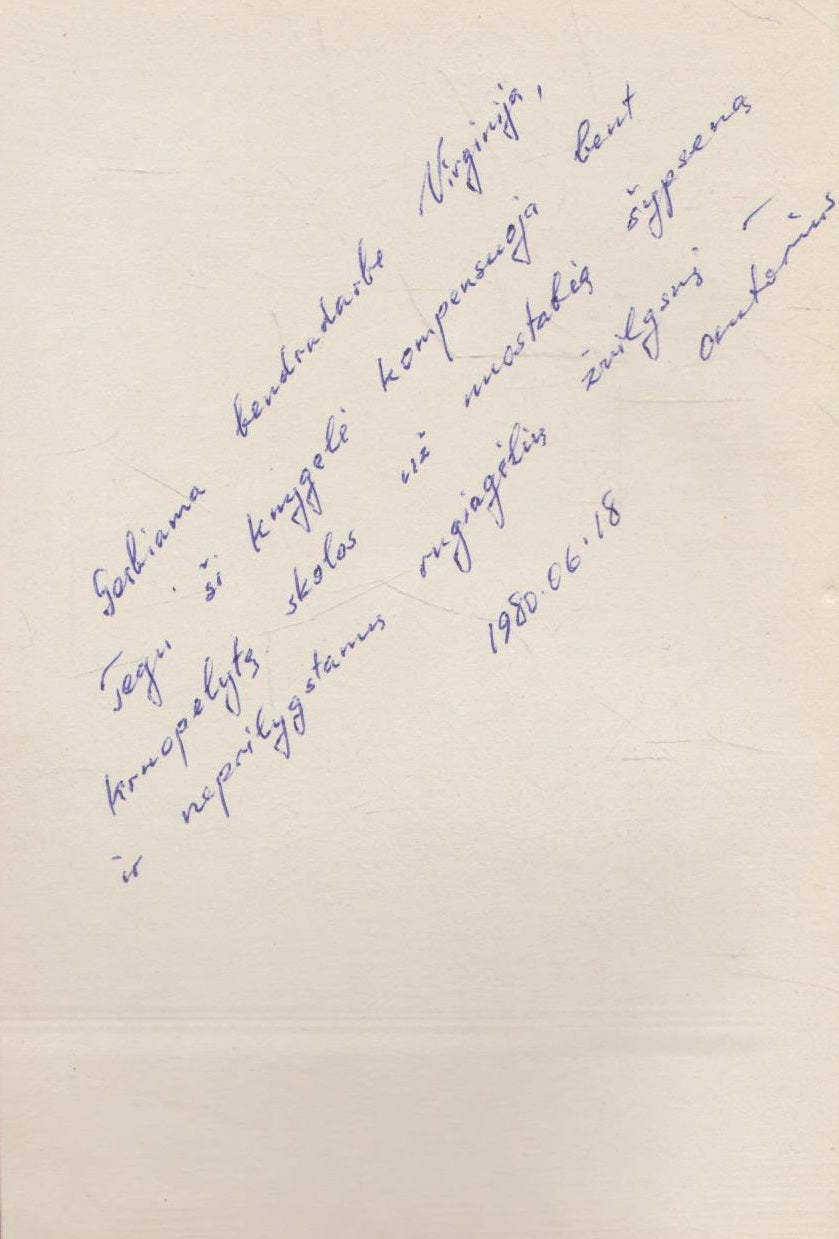 Gerbiama bendradarbe Virginija,
Tegu ši knygelė kompensuoja bent
kruopelytę skolos už nuostabią šypseną
ir neprilygstamų rugiagėlių žvilgsnį –
autorius
1980.06.18